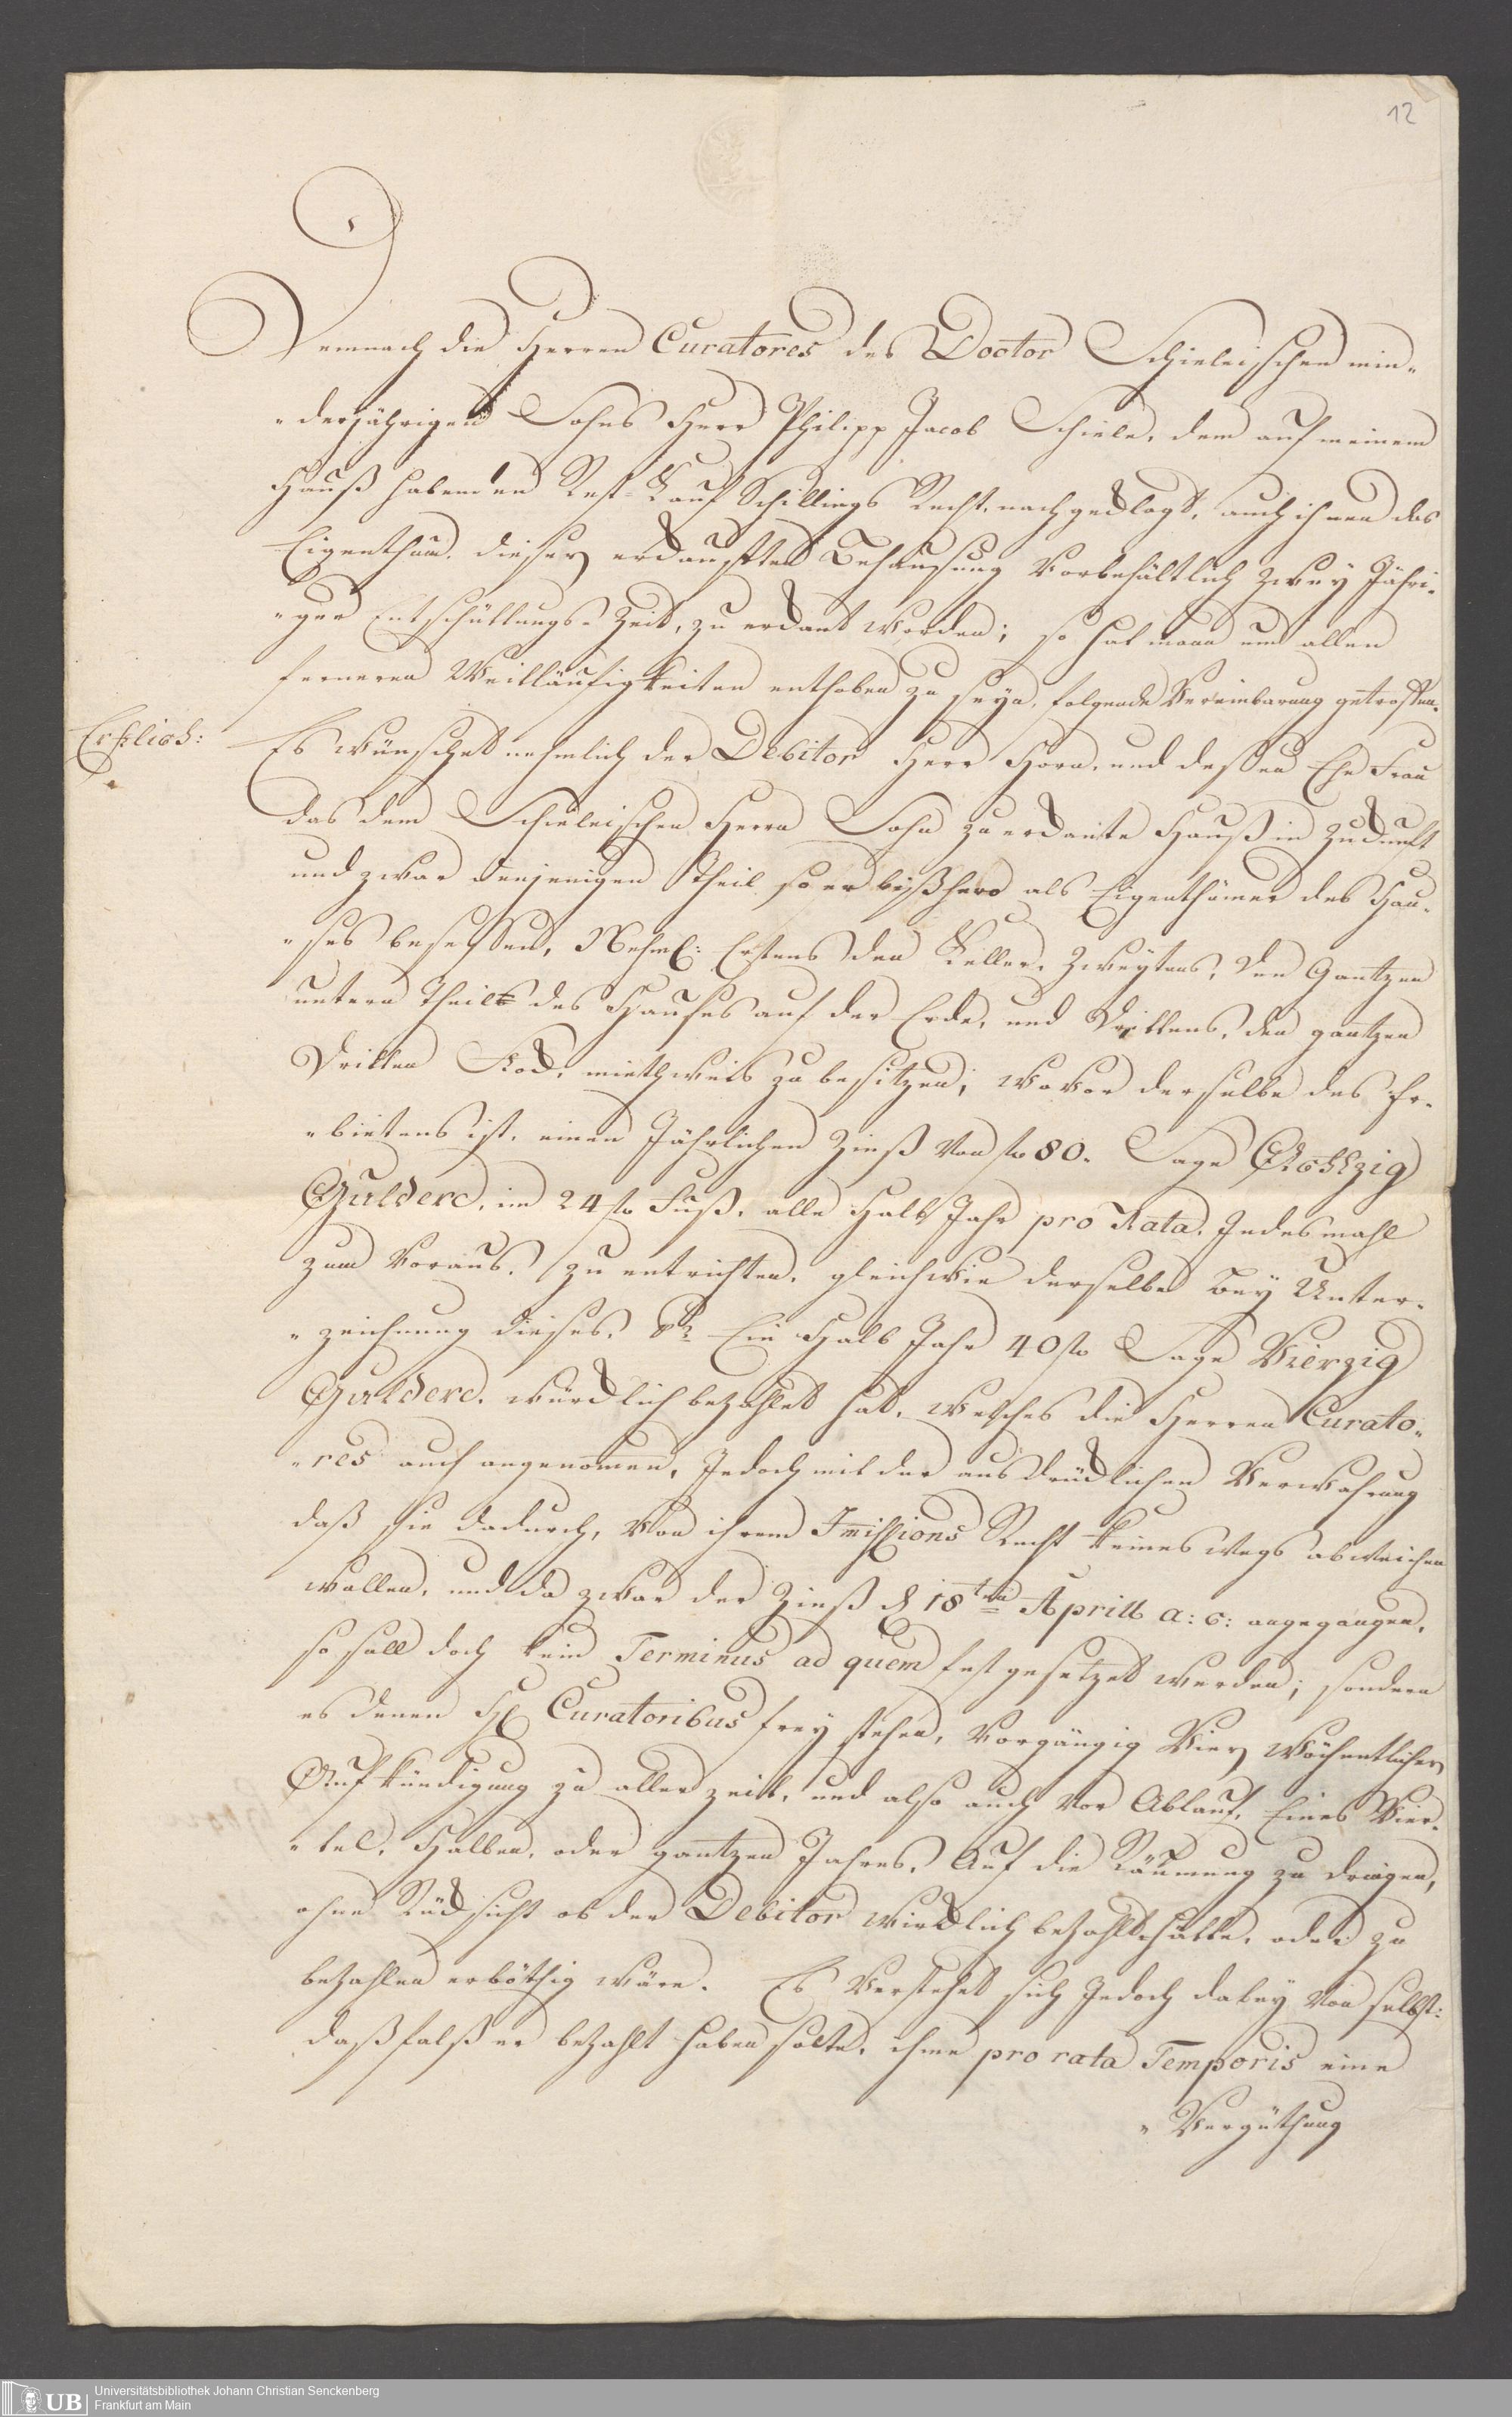 12
Demnach die Herren Curatores des Doctor Schieleischen min„
„derjährigen Sohns Herr Philipp Jacob Schiele, dem auf meinem
Hauß habenden Rest-Kauf Schillings Recht, nachgeklagt, auch ihnen das
Eigenthum, dieser erkauften Behausung Vorbehältlich Zwey Jähri„
„ger Entschüttungs-Zeit, zu erkant worden; so hat mann um allen
ferneren Weitläufigkeiten enthoben zu seyn, folgende Vereinbarung getroffen.
Erstlich:
Es wünschet nehmlich der Debitor Herr Horn, und deßen Ehe Frau
das dem Schieleischen Herrn Sohn zu erkante Hauß in Zukunft
und zwar denjenigen Theil so er bißhero als Eigenthümer des Hau„
„ses besessen, Nehml: Erstens den Keller, Zweytens, den Gantzen
untern Theil des Hauses auf der Erde, und Drittens, den gantzen
Dritten Stock, miethweis zu besitzen; wovor derselbe des Er„
„bietens ist, einen Jährlichen Zinß von fl 80. Sage Achtzig
Gulden, im 24 fl Fuß, alle Halb Jahr pro Rata, Jedesmahl
zum Voraus, zu entrichten, gleichwie derselbe bey Unter„
„zeichnung dieses, Ein Halb Jahr 40 fl Sage Vierzig
Gulden, würcklich bezahlet hat, welches die Herren Curato„
„res auch angenommen, Jedoch mit der ausdrücklichen Verwahrung
daß sie dadurch, von ihrem Immissions Recht keineswegs abweichen
wollen, und da zwar der Zinß d 18ten Aprill a: c: angegangen,
so soll doch kein Terminus ad quem fest gesetzet werden; sondern
es denen HE Curatoribus frey stehen, vorgängig Vier wöchentlicher
Aufkündigung zu aller Zeit, und also auch vor Ablauf, Eines Vier„
„tel, Halben, oder gantzen Jahres, Auf die Räumung zu dringen,
ohne Rücksicht ob der Debitor wircklich bezahlt hätte, oder zu
bezahlen erböthig wäre. Es Verstehet sich Jedoch dabey von selbst:
daß falß er bezahlt haben solte, ihme pro rata Temporis eine
„Vergüthung
UB
Universitätsbibliothek Johann Christian Senckenberg
Frankfurt am Main